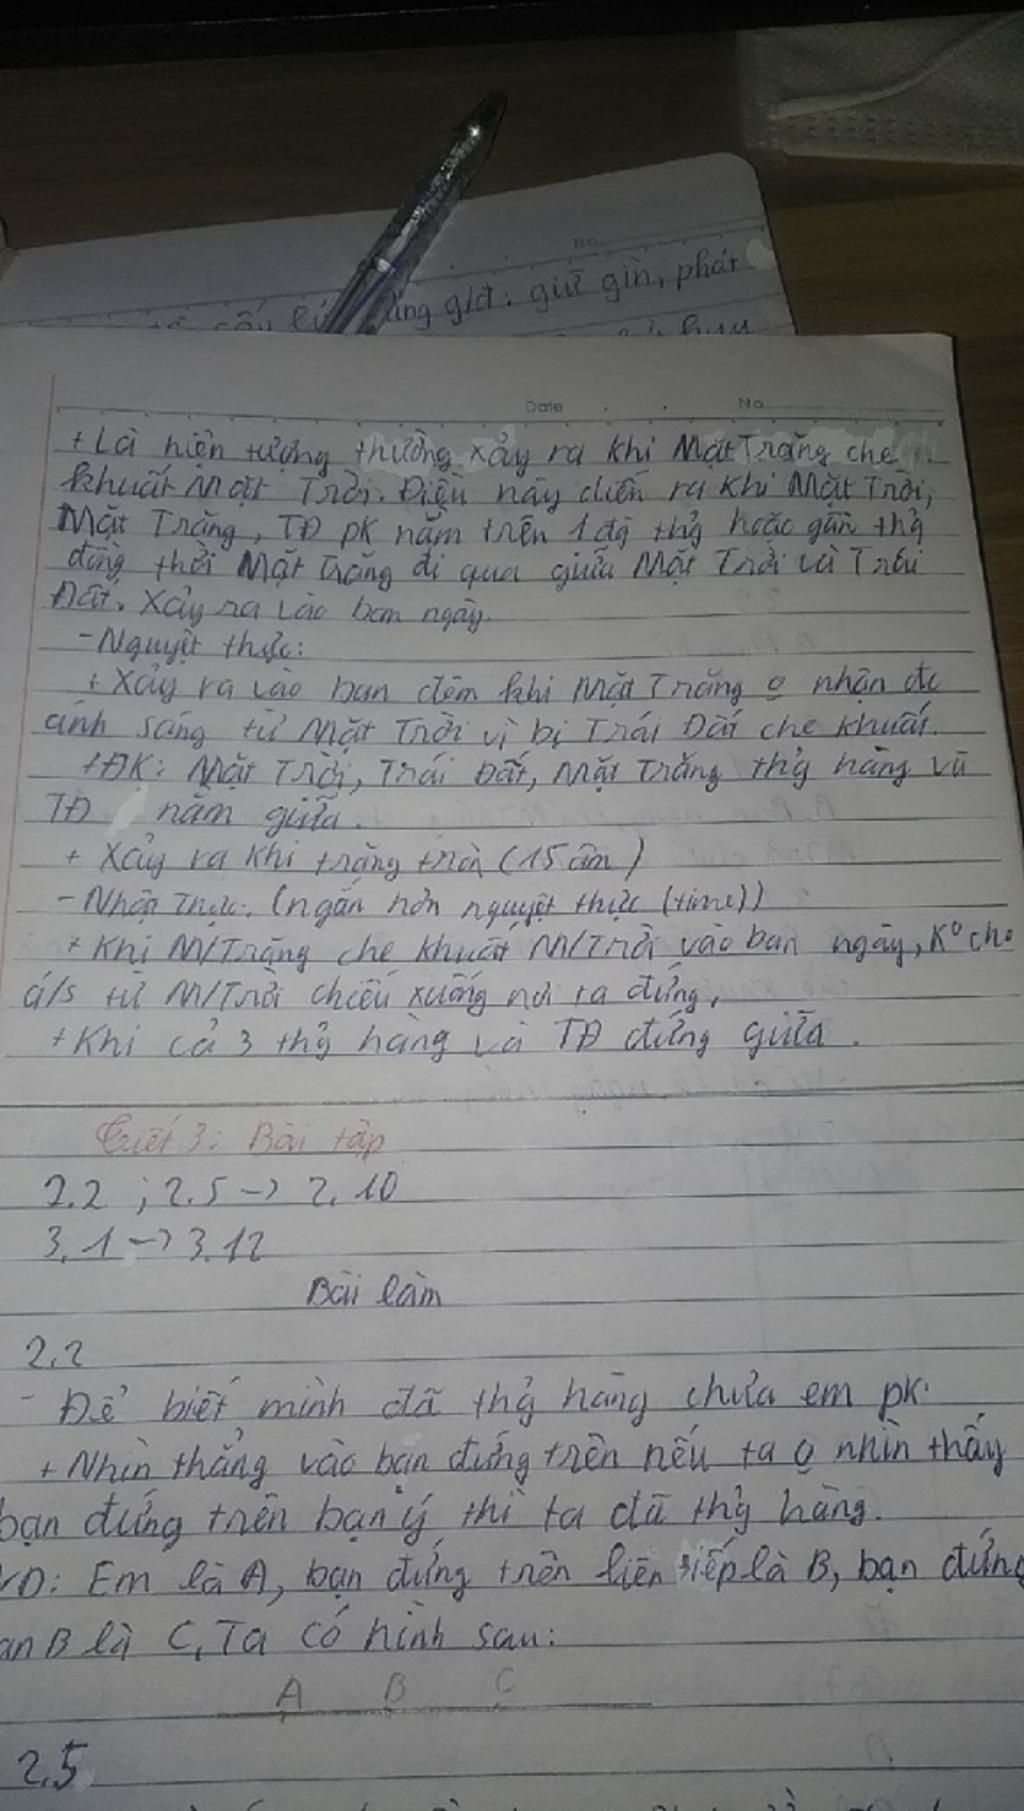 No
ăng g/đ: giữ gìn, phát
Date No
+ Là hiện tượng thường xảy ra khi Mặt Trăng che
khuất Mặt Trời. Điều này diễn ra khi Mặt Trời,
Mặt Trăng, TĐ pk nằm trên 1 đg thg̉ hoặc gần thg̉
đồng thời Mặt Trăng đi qua giữa Mặt Trời và Trái
Đất. Xảy ra vào ban ngày.
- Nguyệt thực:
+ Xảy ra vào ban đêm khi Mặt Trăng o̲ nhận đc
ánh sáng từ Mặt Trời vì bị Trái Đất che khuất.
+ ĐK: Mặt Trời, Trái Đất, Mặt Trăng thg̉ hàng và
TĐ nằm giữa.
+ Xảy ra khi trăng tròn (15 âm)
- Nhật Thực. (ngắn hơn nguyệt thực (time))
+ Khi M/Trăng che khuất M/Trời vào ban ngày, K⁰ cho
á/s từ M/Trời chiếu xuống nơi ta đứng,
+ Khi cả 3 thg̉ hàng và TĐ đứng giữa.
Tiết 3: Bài tập
2.2 ; 2.5 -> 2.10
3.1 -> 3.12
Bài làm
2.2
- Để biết mình đã thg̉ hàng chưa em pk:
+ Nhìn thẳng vào bạn đứng trên nếu ta o̲ nhìn thấy
bạn đứng trên bạn ý thì ta đã thg̉ hàng.
VD: Em là A, bạn đứng trên liên tiếp là B, bạn đứng
B là C, Ta có hình sau:
A B C
2.5